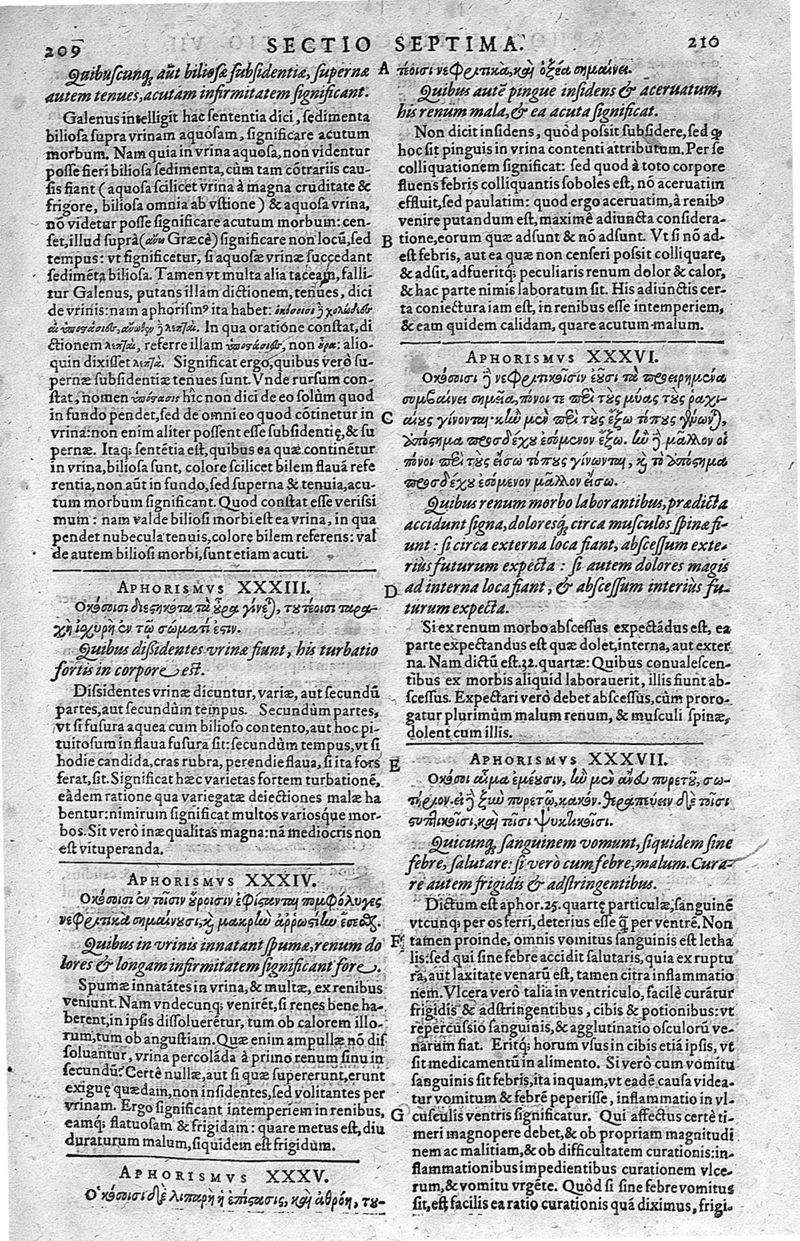 209
SECTIO SEPTIMA.
210
Quibuscunq; aūt biliosæ subsidentiæ, supernæ
autem tenues, acutam infirmitatem significant.
Galenus intelligit hac sententia dici, sedimenta
biliosa supra vrinam aquosam, significare acutum
morbum. Nam quia in vrina aquosa, non videntur
posse fieri biliosa sedimenta, cùm tam cōtrariis cau-
sis fiant (aquosa scilicet vrina à magna cruditate &
frigore, biliosa omnia ab vstione) & aquosa vrina,
nō videtur posse significare acutum morbum: cen-
set, illud suprà (ἄνω Græcè) significare non locū, sed
tempus: vt significetur, si aquosæ vrinæ succedant
sedimēta biliosa. Tamen vt multa alia taceam, falli-
tur Galenus, putans illam dictionem, tenues, dici
de vrinis: nam aphorismꝰ ita habet:
In qua oratione constat, di
ctionem λεπταὶ, referre illam non οὖρα: alio-
quin dixisset λεπτά. Significat ergo, quibus verò su-
pernæ subsidentiæ tenues sunt. Vnde rursum con-
stat, nomen ὑπόστασις hîc non dici de eo solùm quod
in fundo pendet, sed de omni eo quod cōtinetur in
vrina: non enim aliter possent esse subsidentię, & su
pernæ. Itaq; sentētia est, quibus ea quæ continētur
in vrina, biliosa sunt, colore scilicet bilem flauā refe
rentia, non aūt in fundo, sed superna & tenuia, acu-
tum morbum significant. Quod constat esse verissi
mum: nam valde biliosi morbi est ea vrina, in qua
pendet nubecula tenuis, colore bilem referens: val
de autem biliosi morbi, sunt etiam acuti.
APHORISMVS XXXIII.
Ὁκόσοισι διεστηκότα τὰ οὖρα γίνεται, τουτέοισι ταρα-
χὴ ἰσχυρὴ ἐν τῷ σώματί ἐστιν.
Quibus dissidentes vrinæ fiunt, his turbatio
fortis in corpore est.
Dissidentes vrinæ dicuntur, variæ, aut secundū
partes, aut secundùm tempus. Secundùm partes,
vt si fusura aquea cum bilioso contento, aut hoc pi-
tuitosum in flaua fusura sit: secundùm tempus, vt si
hodie candida, cras rubra, perendie flaua, si ita fors
ferat, sit. Significat hæc varietas fortem turbationē,
eâdem ratione qua variegatæ deiectiones malæ ha
bentur: nimirum significat multos variosque mor-
bos. Sit verò inæqualitas magna: nā mediocris non
est vituperanda.
APHORISMVS XXXIV.
Ὁκόσοισι ἐν τοῖσιν οὔροισιν ἐφίστανται πομφόλυγες
νεφριτικὰ σημαίνουσι, καὶ μακρὴν ἀρρωστίην ἔσεσθαι.
Quibus in vrinis innatant spumæ, renum do
lores & longam infirmitatem significant fore.
Spumæ innatātes in vrina, & multæ, ex renibus
veniunt. Nam vndecunq; venirēt, si renes bene ha-
berent, in ipsis dissoluerētur, tum ob calorem illo-
rum, tum ob angustiam. Quæ enim ampullæ nō dis
soluantur, vrina percolāda à primo renum sinu in
secundū? Certè nullæ, aut si quæ supererunt, erunt
exiguę quædam, non insidentes, sed volitantes per
vrinam. Ergo significant intemperiem in renibus,
eamq; flatuosam & frigidam: quare metus est, diu
duraturum malum, siquidem est frigidum.
APHORISMVS XXXV.
Ὁκόσοισι δὲ λιπαρὴ ἡ ἐπίστασις, καὶ ἀθρόη, του-
A
τέοισι νεφριτικὰ, καὶ ὀξέα σημαίνει.
Quibus autē pingue insidens & aceruatum,
his renum mala, & ea acuta significat.
Non dicit insidens, quòd possit subsidere, sed ꝙ
hoc sit pinguis in vrina contenti attributum. Per se
colliquationem significat: sed quod à toto corpore
fluens febris colliquantis soboles est, nō aceruatim
effluit, sed paulatim: quod ergo aceruatim, à renibꝰ
venire putandum est, maximè adiuncta considera-
B
tione, eorum quæ adsunt & nō adsunt. Vt si nō ad-
est febris, aut ea quæ non censeri possit colliquare,
& adsit, adfueritq; peculiaris renum dolor & calor,
& hac parte nimis laboratum sit. His adiunctis cer-
ta coniectura iam est, in renibus esse intemperiem,
& eam quidem calidam, quare acutum malum.
APHORISMVS XXXVI.
Ὁκόσοισι δὲ νεφριτικοῖσιν ἐοῦσι τὰ προειρημένα
συμβαίνει σημεῖα, πόνοι τε περὶ τοὺς μύας τοὺς ραχι-
C
αίους γίνονται· κἢν μὲν περὶ τοὺς ἔξω τόπους γίνωνται,
ἀπόστημα προσδέχου ἐσόμενον ἔξω. ἢν δὲ μᾶλλον οἱ
πόνοι περὶ τοὺς εἴσω τόπους γίνωνται, καὶ τὸ ἀπόστημα
προσδέχου ἐσόμενον μᾶλλον εἴσω.
Quibus renum morbo laborantibus, prædicta
accidunt signa, doloresq; circa musculos spinæ fi-
unt: si circa externa loca fiant, abscessum exte-
rius futurum expecta: si autem dolores magis
D
ad interna loca fiant, & abscessum interius fu-
turum expecta.
Si ex renum morbo abscessus expectādus est, ea
parte expectandus est quæ dolet, interna, aut exter
na. Nam dictū est. 32. quartæ: Quibus conualescen-
tibus ex morbis aliquid laborauerit, illis fiunt ab-
scessus. Expectari verò debet abscessus, cùm proro-
gatur plurimùm malum renum, & musculi spinæ,
dolent cum illis.
APHORISMVS XXXVII.
E
Ὁκόσοι αἷμα ἐμέουσιν, ἢν μὲν ἄνευ πυρετοῦ, σω-
τήριον. εἰ δὲ ξὺν πυρετῷ, κακόν. θεραπεύειν δὲ τοῖσι
στυπτικοῖσι, καὶ τοῖσι ψυκτικοῖσι.
Quicunq; sanguinem vomunt, siquidem sine
febre, salutare: si verò cum febre, malum. Cura-
re autem frigidis & adstringentibus.
Dictum est aphor. 25. quartę particulæ, sanguinē
vtcunq; per os ferri, deterius esse ꝙ per ventrē. Non
F
tamen proinde, omnis vomitus sanguinis est letha
lis: sed qui sine febre accidit salutaris, quia ex ruptu
ra, aut laxitate venarū est, tamen citra inflammatio
nem. Vlcera verò talia in ventriculo, facilè curātur
frigidis & adstringentibus, cibis & potionibus: vt
repercussio sanguinis, & agglutinatio osculorū ve-
narum fiat. Eritq; horum vsus in cibis etiā ipsis, vt
sit medicamentū in alimento. Si verò cum vomitu
sanguinis sit febris, ita inquam, vt eadē causa videa-
tur vomitum & febrē peperisse, inflammatio in vl-
G
cusculis ventris significatur. Qui affectus certè ti-
meri magnopere debet, & ob propriam magnitudi
nem ac malitiam, & ob difficultatem curationis: in-
flammationibus impedientibus curationem vlce-
rum, & vomitu vrgēte. Quòd si sine febre vomitus
sit, est facilis ea ratio curationis quā diximus, frigi-